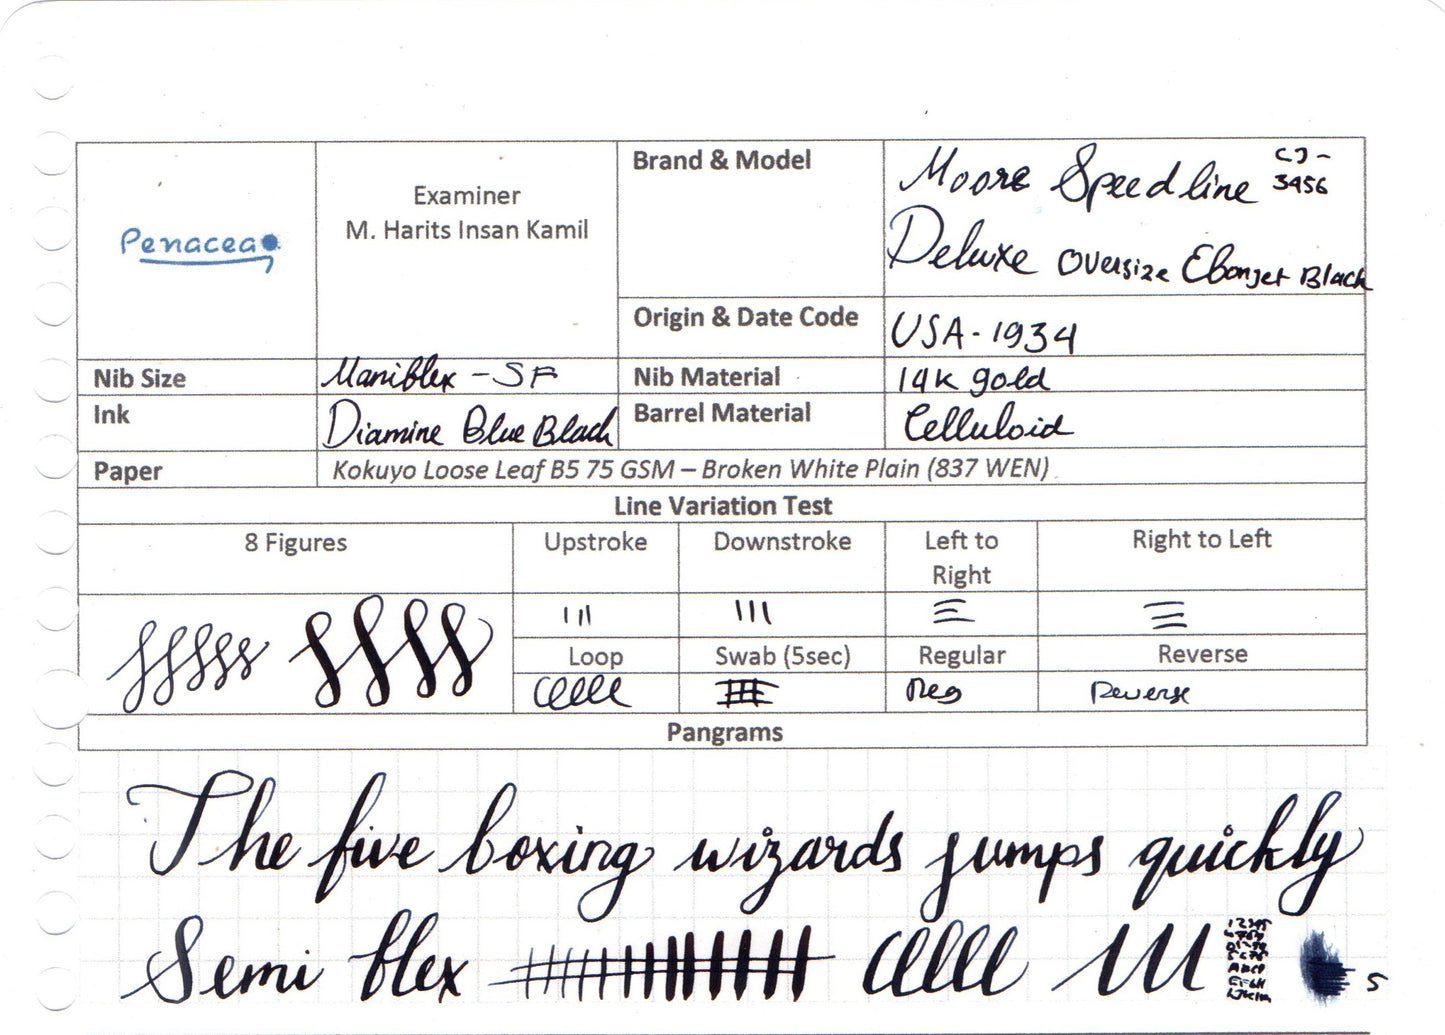 Penacea
Examiner
M. Harits Insan Kamil
Brand & Model
Moore Speedline CJ-
3456
Deluxe Oversize Ebonjet Black
Origin & Date Code
USA - 1934
Nib Size
Maniflex - SF
Nib Material
14K gold
Ink
Diamine Blue Black
Barrel Material
Celluloid
Paper
Kokuyo Loose Leaf B5 75 GSM – Broken White Plain (837 WEN)
Line Variation Test
8 Figures
Upstroke
Downstroke
Left to
Right
Right to Left
Loop
Swab (5sec)
Regular
Reverse
Reg
Reverse
Pangrams
The five boxing wizards jumps quickly
Semi flex
12345
5